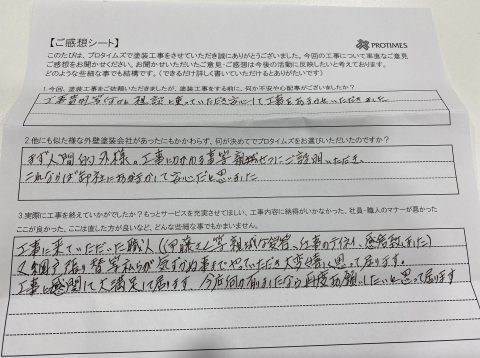 【ご感想シート】
PROTIMES
このたびは、プロタイムズで塗装工事をさせていただき誠にありがとうございました。今回の工事について率直なご意見
ご感想をお聞かせください。お聞かせいただいたご意見・ご感想は今後の活動に反映したいと考えております。
どのような些細な事でも結構です。（できるだけ詳しく書いていただけるとありがたいです）
1.今回、塗装工事をご依頼いただきましたが、塗装工事をする前に、何か不安や心配事がございましたか？
工事費用等 相談に乗っていただき安心して工事を
2.他にも似た様な外壁塗装会社があったにもかかわらず、何が決めてでプロタイムズをお選びいただいたのですか？
まず人間的 工事にかかわる事等親切にご説明いただき、
これなら 御社にお任せして安心だと思いました
3.実際に工事を終えていかがでしたか？もっとサービスを充実させてほしい、工事内容に納得がいかなかった、社員・職人のマナーが悪かった
ここが良かった、ここは直した方が良いなど、どんな些細な事でもかまいません。
工事に来ていただいた職人（伊藤さん等親切な 仕事のテイネイ、感心致しました）
又網戸張り替等私らが気ずかぬ事までやっていただき大変嬉しく思って居ります。
工事に感関して大満足して居ります 今后何か有りましたなら再度お願いしたいと思って居ります